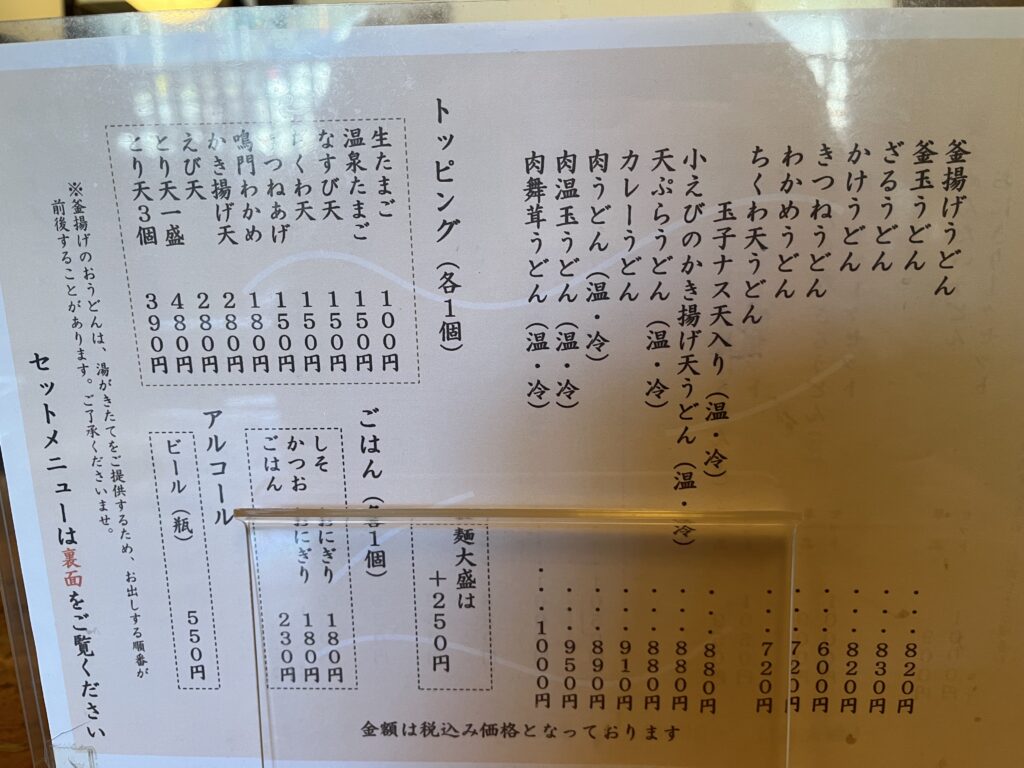 釜揚げうどん・・・820円
釜玉うどん・・・830円
ざるうどん・・・820円
かけうどん・・・600円
きつねうどん・・720円
わかめうどん・・・720円
ちくわ天うどん
玉子ナス天入り(温・冷)・・880円
小えびのかき揚げ天うどん(温・冷)・・・880円
天ぷらうどん(温・冷)・・・880円
カレーうどん・・・910円
肉うどん(温・冷)・・・890円
肉温玉うどん(温・冷)・・・950円
肉舞茸うどん(温・冷)・・・1000円
トッピング(各1個)
生たまご 100円
温泉たまご 150円
なすび天 150円
くわ天 150円
つねあげ 150円
鳴門わかめ 180円
かき揚げ天 280円
えび天 280円
とり天一盛 480円
とり天3個 390円
麺大盛は
+250円
ごはん(各1個)
しそ おにぎり 180円
かつお おにぎり 180円
ごはん 230円
アルコール
ビール(瓶) 550円
※釜揚げのおうどんは、湯がきたてをご提供するため、お出しする順番が
前後することがあります。ご了承くださいませ。
セットメニューは裏面をご覧ください
金額は税込み価格となっております